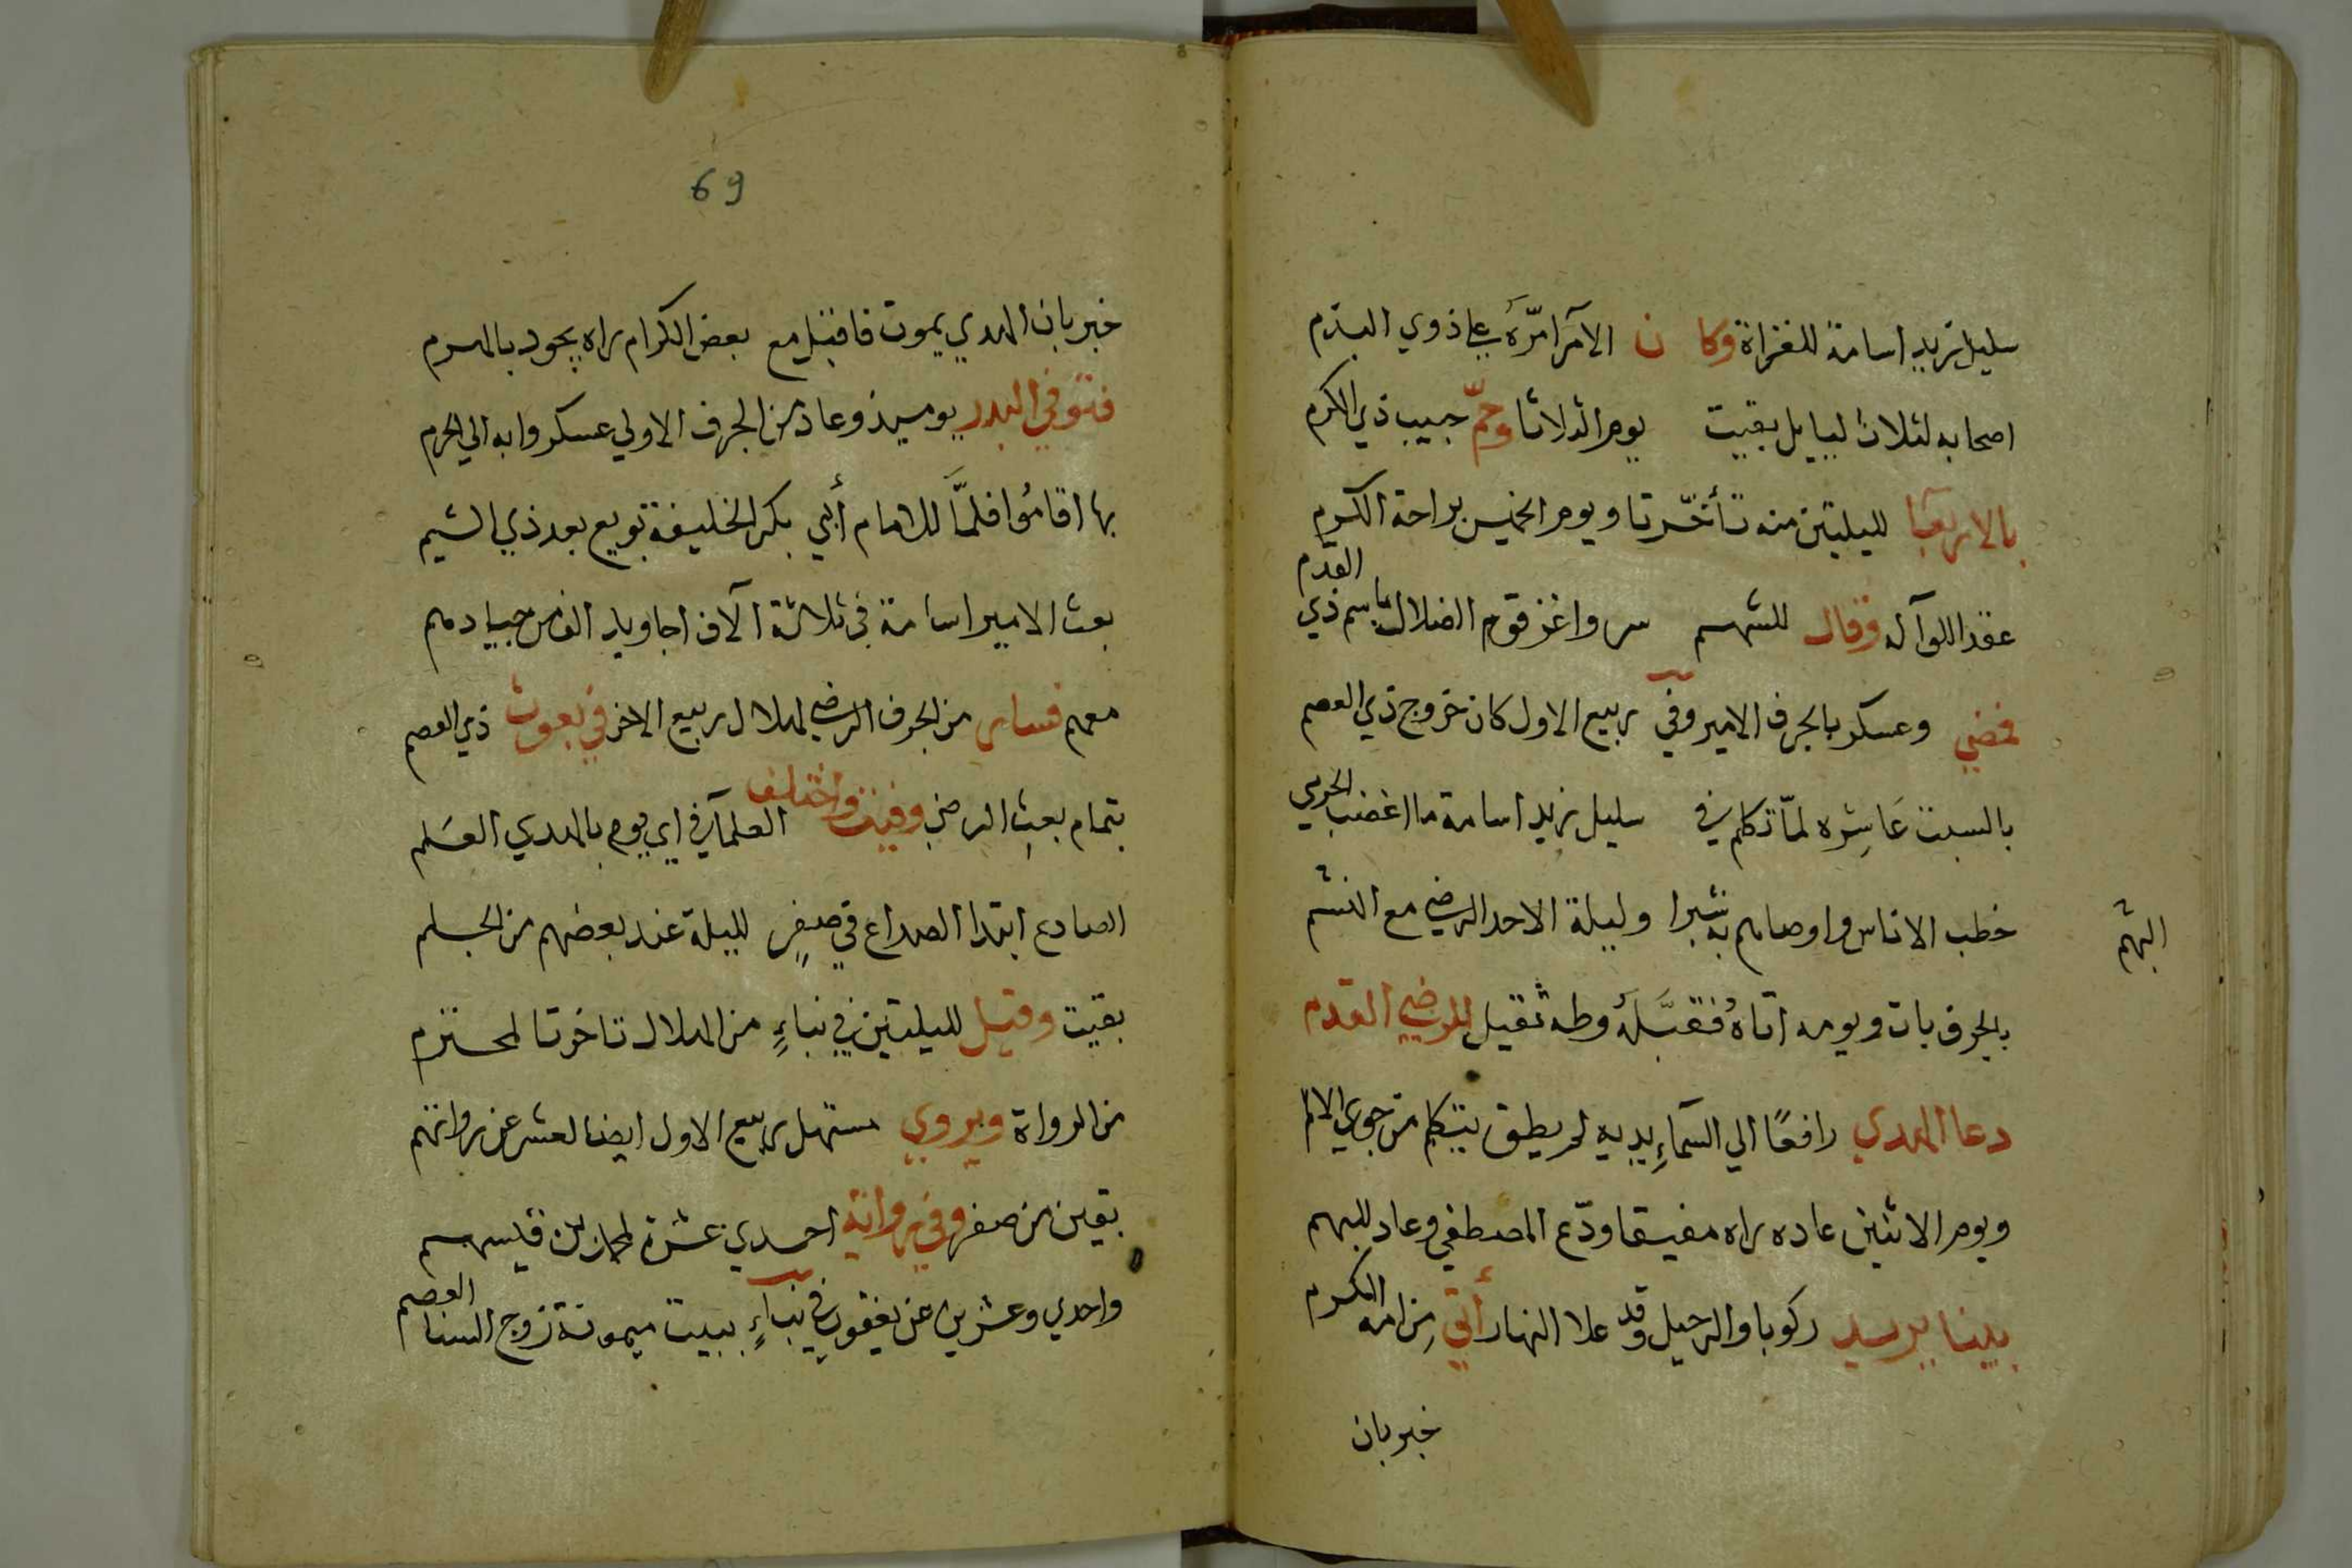 سليل زيد اسامة للغزاة وكان الامر امره علي ذوي البذم
اصحابه لثلاث ليايل بقيت يوم الثلاثا وحم حبيب ذي الكرم
بالاربعا لليلتين منه تأخرتا ويوم الخميس براحة الكرم
عقد اللوآ له وقال للشهم سر واغز قوم الضلال باسم ذي القدم
فمضي وعسكر بالجرف الامير وفي ربيع الاول كان خروج ذي العصم
بالسبت عاشره لما تكلم في سليل زيد اسامة ما اغضب الحرمي
خطب الاناس واوصاهم به نثيرا وليلة الاحد الرضي مع النشم
البهم
بالجرف بات ويومه اتاه فقبله وطه ثقيل للرضي القدم
دعا الهدي رافعا الي السمآء يديه لم يطق يتكلم من جوي الالم
ويوم الاثنين عاده راه مفيقا ودع المصطفي وعاد للبهم
بينا يريد ركوبا والرحيل وقد علا النهار أتي من امه الكرم
خبر بان
69
خبر بان الهدي يموت فاقبل مع بعض الكرام راه يجود بالهرم
فتوفي البدر يوميذ وعاد من الجرف الاولي عسكروا به الي الحرم
بها اقاموا فلما للامام أبي بكر الخليفة بويع بعد ذي الشيم
بعث الامير اسامة في ثلاثة آلاف اجاويد الف من جيادهم
معهم فسار من الجرف الرضي لهلال ربيع الاخر في بعوث ذي العصم
بتمام بعث الرضي وفيت واختلف العلمآ في اي يوم بالهدي العلم
الصادع ابتدا الصداع في صفر لليلة عند بعضهم من الجلم
بقيت وقيل لليلتين في نباء من الهلال تاخرتا لمحتزم
من الرواة ويروي مستهل ربيع الاول ايضا لعشر عن رواتهم
بقين من صفر وفي رواية احدي عشرة لمحمد بن قيسهم
واحدي وعشرين عن يعقوب في نبآء ببيت ميمونة زوج السنا العصم